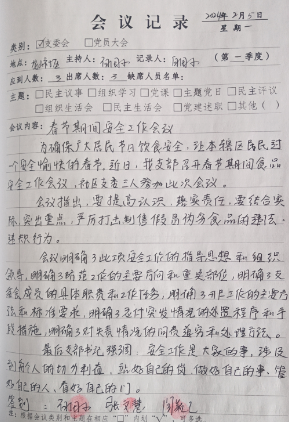 会议记录
2024年2月5日
星期一
类别：☑支委会 □党员大会
地点： 主持人： 记录人： （第一季度）
应到人数：3 出席人数：3 缺席人员名单：
主题：□民主议事 □组织学习 □党课 □主题党日 □民主评议
□组织生活会 □民主生活会 □党建述职 □其他（ ）
会议内容：春节期间安全工作会议
为确保广大居民节日饮食安全，让本辖区居民过
一个安全愉快的春节，近日，我支部召开春节期间食品
安全工作会议，社区支委三人参加此次会议。
会议指出，要提高认识，落实责任，要结合实
际，突出重点，严厉打击制售假冒伪劣食品的违法、
违规行为。
会议明确了此项安全工作的指导思想和组织
领导，明确了防范工作的主要方向和重点部位，明确了支
委会成员的具体职责和工作任务，明确了开展工作的主要方
法和标准要求，明确了应对突发情况的处置程序和手
段措施，明确了对失责情况的问责追究和处理办法。
最后支部书记强调，安全工作是大家的事，涉及
到每个人的切身利益，站好自己的岗，做好自己的事，管
好自己的人，看好自己的门。
签到：